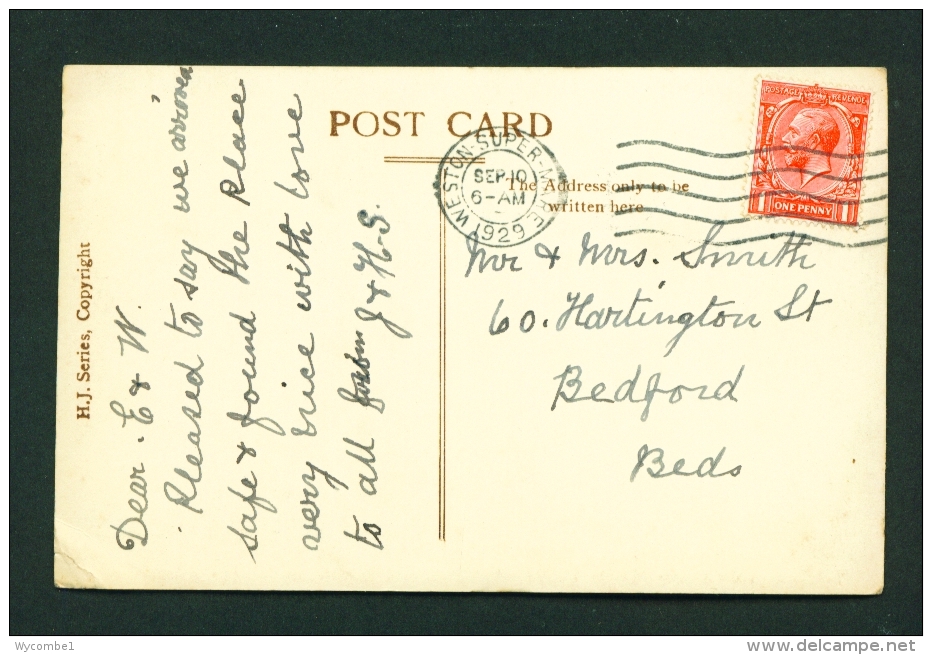 POST CARD
The Address only to be
written here
H.J. Series, Copyright
WESTON-SUPER-MARE
SEP 10
6-AM
1929
POSTAGE REVENUE
ONE PENNY
Dear. E & W.
Pleased to say we arrived
safe & found the Place
very nice with love
to all from J & H. S.
Mr & Mrs. Smith
60. Hartington St
Bedford
Beds
Wycombe1
www.delcampe.net